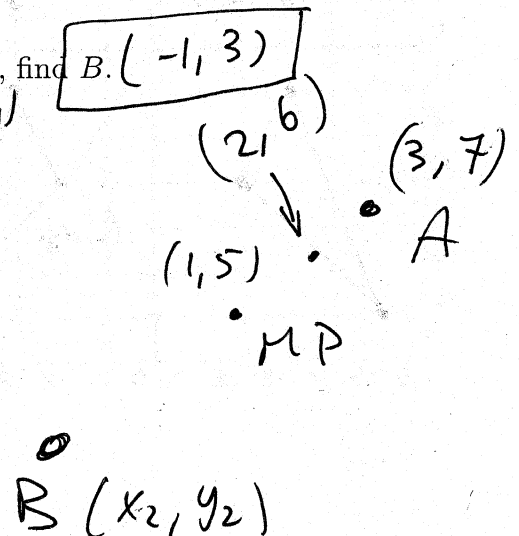 , find B. (-1, 3)
(2, 6)
(3, 7)
A
(1, 5)
MP
B (x₂, y₂)